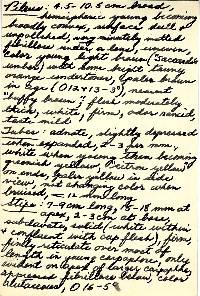 Pileus: 4.5-10.5 cm broad,
hemispheric young becoming
broadly convex, surface dull,
unpolished, very minutely matted
fibrillose under a lens, uneven,
color young light brown (Saccardo's
umber), older some bright tawny
orange undertones, & paler brown
in age (012Y13-3°) nearest
"buffy brown"; flesh moderately
thick, white, firm, odor rancid,
taste mild
Tubes: adnate, slightly depressed
when expanded, 2-3 per mm,
white when young then becoming
greenish yellow, "citron yellow"
on ends, paler yellow in side
view, not changing color when
bruised, - 12 mm long
Stipe: 7-9 cm long, 15-18 mm at
apex, 2-3 cm at base,
subclavate, solid (white within
& confluent with cap flesh), firm,
finely reticulate over most of
length in young carpophores, only
evident on apex of larger carpophores,
appressed fibrillose below, color
alutaceous, 016-5°